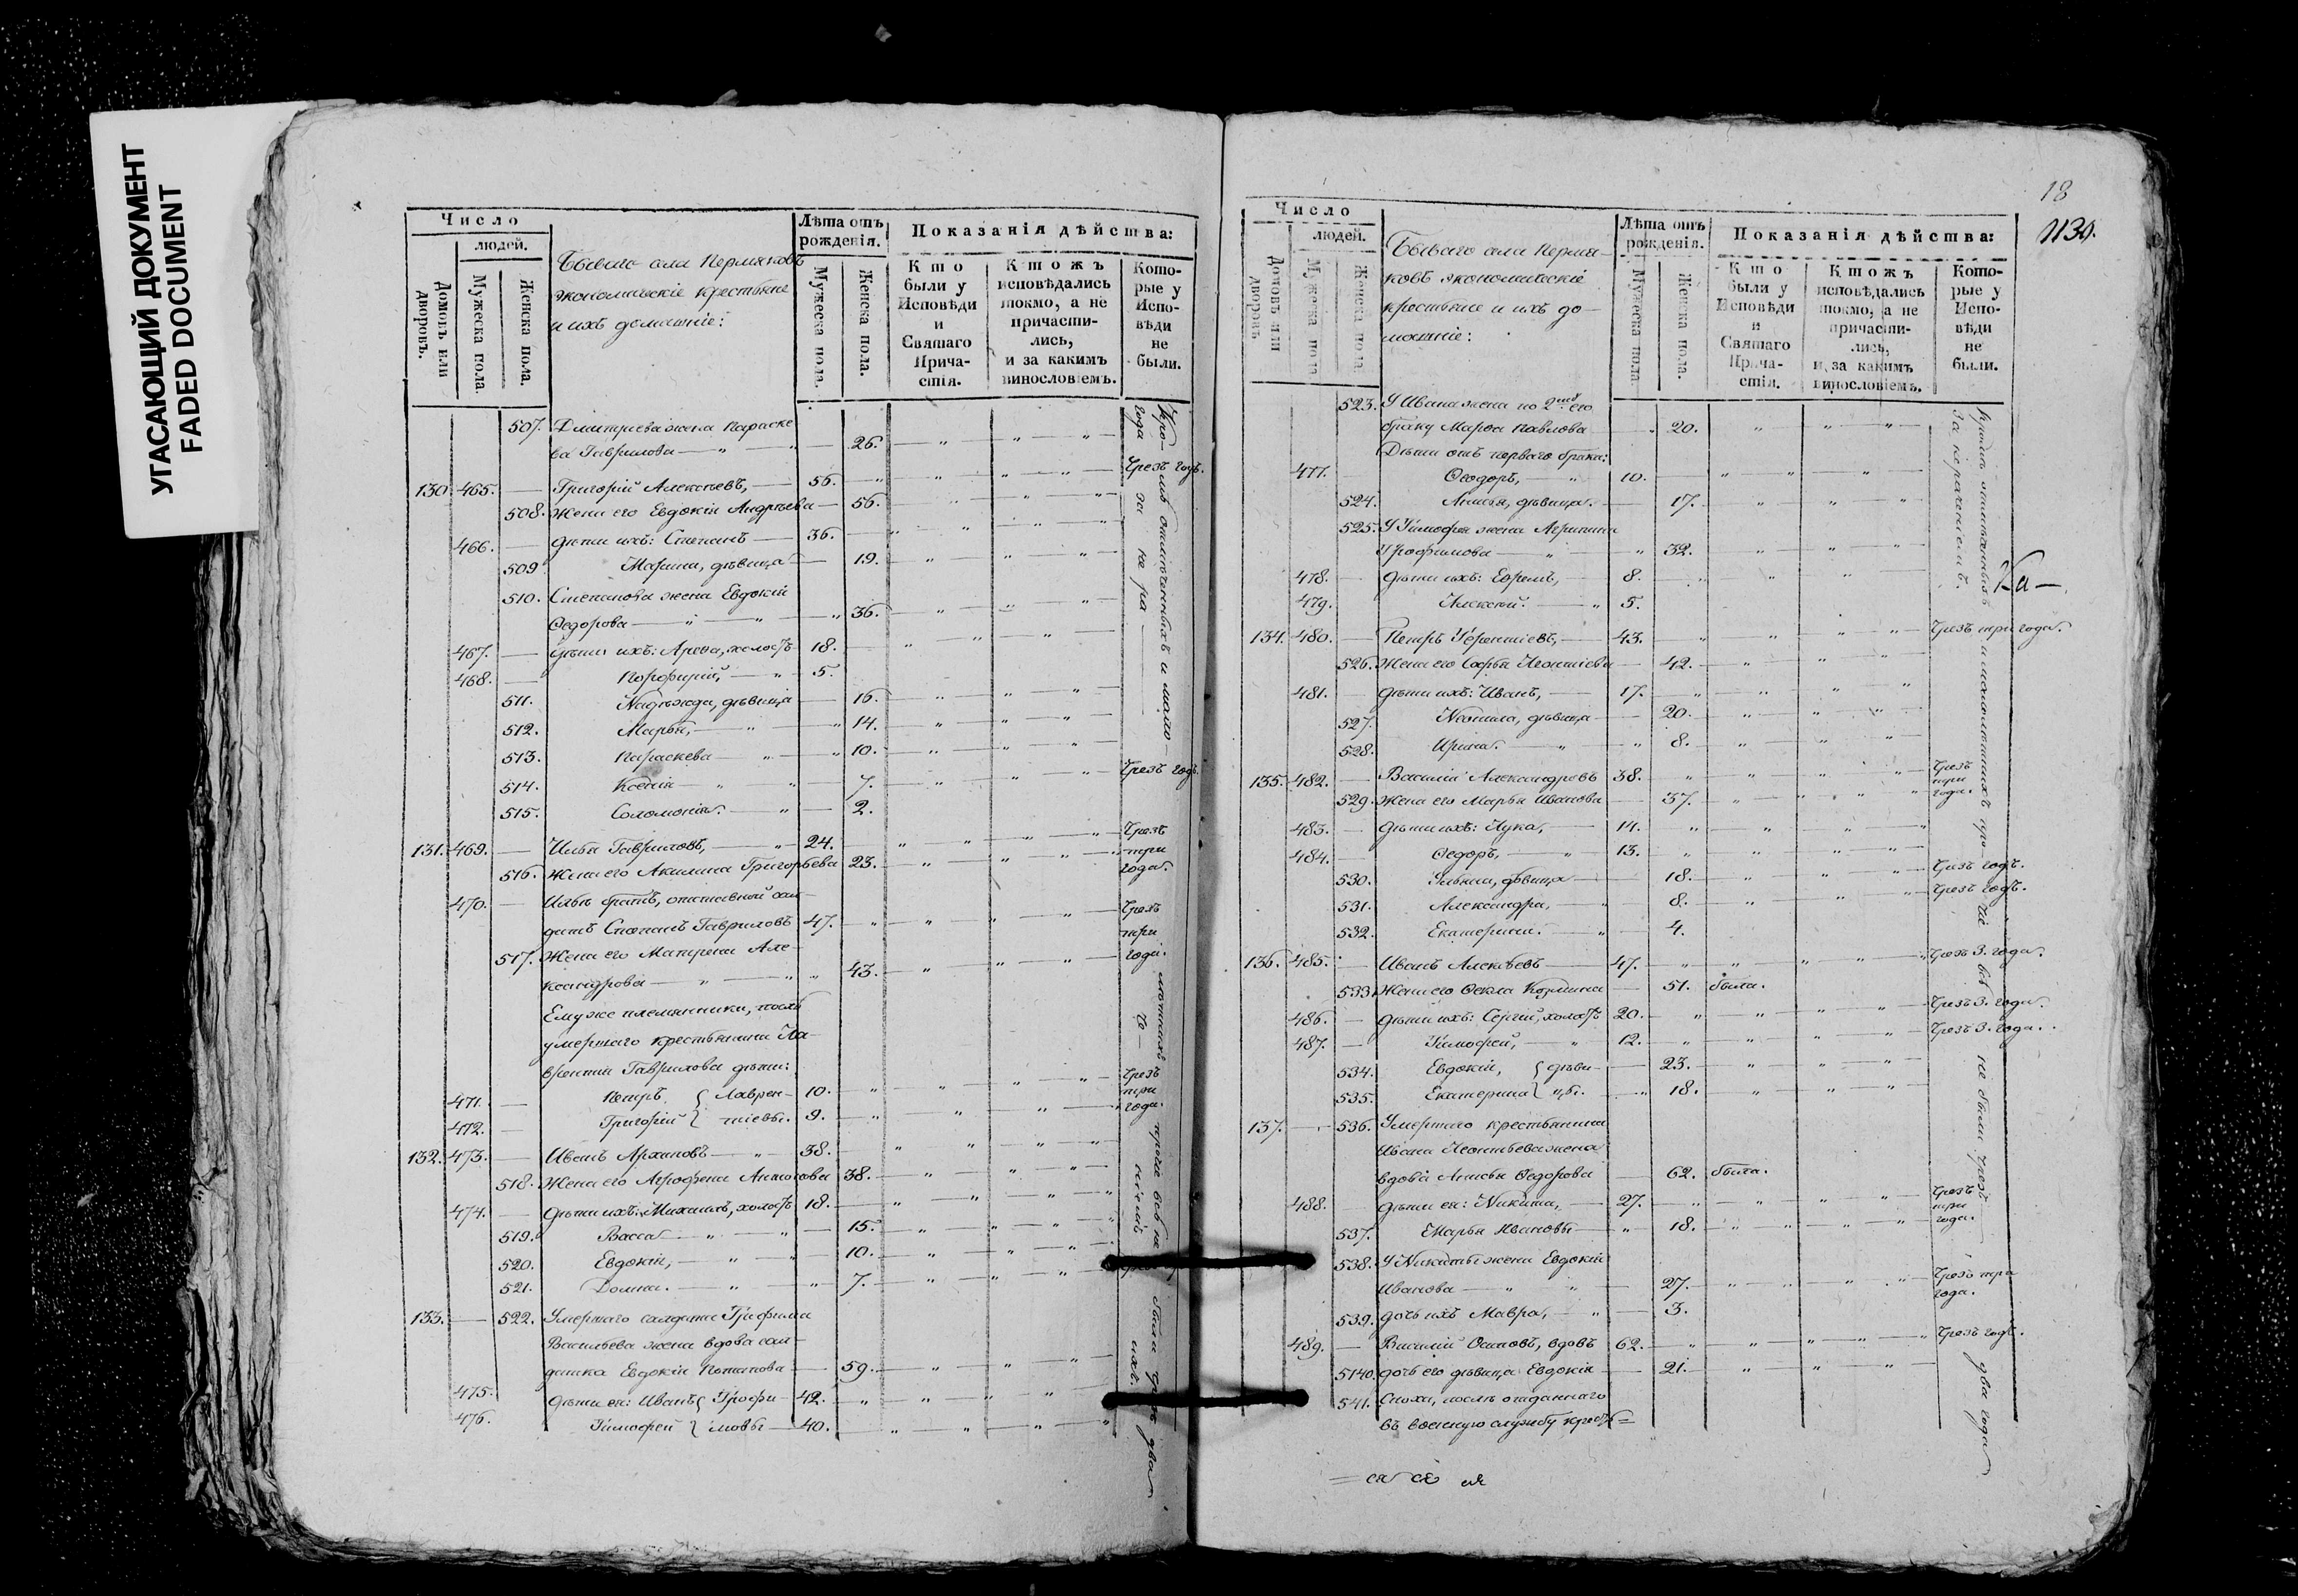 УГАСАЮЩИЙ ДОКУМЕНТ
FADED DOCUMENT
Число
людей.
Домовъ или дворовъ.
Мужеска пола.
Женска пола.
Бываго села Пермяковъ
экономическіе крестьяне
и ихъ домашніе:
Лѣта отъ рожденія.
Мужеска пола.
Женска пола.
Показанія дѣйства:
Кто были у Исповѣди и Святаго Причастія.
Ктожъ исповѣдались токмо, а не причастились, и за какимъ винословіемъ.
Которые у Исповѣди не были.
507. Дмитріева жена Параске
ва Гаврилова — " — 26.
130. 465. Григорій Алексѣевъ, — 56. Чрезъ годъ.
508. Жена его Евдокія Андреева — 56.
466. дѣти ихъ: Степанъ — 36.
509 Марина, дѣвица — 19.
510. Степанова жена Евдокія
Ѳедорова — " — " 36.
467. дѣти ихъ: Арефа, холостъ 18.
468. Порфирій, — " 5.
511. Надѣжда, дѣвица — 16.
512. Марья, — " 14.
513. Параскева — " 10.
514. Ксенія — " — 7. Чрезъ годъ.
515. Соломонія. — " — 2.
131. 469. Илья Гавриловъ, — " 24. Чрезъ три года.
516. Жена его Акилина Григорьева 23.
470. Ильи братъ, отставной сол-
датъ Степанъ Гавриловъ 47. Чрезъ три года.
517. Жена его Матрена Але-
ксандрова — " — " 43.
Ему же племянники, послѣ
умершаго крестьянина Ла-
врентія Гаврилова дѣти:
471. Петръ { Лаврен- 10. Чрезъ три года.
472. Григорій } тіевы. 9.
132. 473. Иванъ Архиповъ — " 38.
518. Жена его Агрофена Антонова 38.
474. Дѣти ихъ: Михаилъ, холостъ 18.
519. Васса — " 15.
520. Евдокія, — " 10.
521. Домна. — " 7.
133. 522. Умершаго солдата Трофима
Васильева жена вдова сол-
датка Евдокія Потапова — 59.
475. Дѣти ея: Иванъ { Трофи- 42.
476. Тимофей } мовы — 40.
18
1139.
Число
людей.
Домовъ или дворовъ
Мужеска пола
Женска пола.
Бываго села Пермя-
ковъ экономическіе
крестьяне и ихъ до-
машніе:
Лѣта отъ рожденія.
Мужеска пола.
Женска пола.
Показанія дѣйства:
Кто были у Исповѣди и Святаго Причастія.
Ктожъ исповѣдались токмо, а не причастились, и за какимъ винословіемъ.
Которые у Исповѣди не были.
523. У Ивана жена по 2му его
браку Марѳа Павлова 20.
Дѣти отъ перваго брака:
477. Ѳеодоръ, — " 10.
524. Анисья, дѣвица. — 17.
525. У Тимофея жена Агрипина
Трофимова — " 32.
478. дѣти ихъ: Ефремъ, — 8.
479. Алексѣй. — " 5.
134. 480. Петръ Терентіевъ, — 43. Чрезъ три года.
526. Жена его Софья Леонтіева — 42.
481. дѣти ихъ: Иванъ, — 17.
527. Неонила, дѣвица — 20.
528. Ирина. — " 8.
135. 482. Василій Александровъ 38. Чрезъ три года.
529. Жена его Марья Иванова 37.
483. дѣти ихъ: Лука, — 14.
484. Ѳедоръ, — " 13.
530. Ульяна, дѣвица — 18. Чрезъ годъ.
531. Александра, — 8. Чрезъ годъ.
532. Екатерина. — " 4.
136. 485. Иванъ Алексѣевъ — 47. Чрезъ 3. года.
533. Жена его Ѳекла Козмина — 51. была.
486. дѣти ихъ: Сергій, холостъ 20. Чрезъ 3. года.
487. Тимофей, — " 12. Чрезъ 3. года.
534. Евдокія, { дѣви- — 23.
535. Екатерина } цы. — 18.
137. 536. Умершаго крестьянина
Ивана Леонтьева жена
вдова Анисья Ѳедорова 62. была.
488. дѣти ея: Никита, — 27. Чрезъ три года.
537. Марья Ивановы — 18.
538. У Никиты жена Евдокія
Иванова — " 27. Чрезъ три года.
539. дочь ихъ Мавра, — " 3.
489. Василій Осиповъ, вдовъ 62. Чрезъ годъ.
5140. дочь его дѣвица Евдокія — 21.
541. Сноха, послѣ отданнаго
въ военную службу крест=
Кромѣ отмѣченныхъ и мало-
лѣтнихъ прочіе всѣ не были чрезъ два
года за нера-
че-
ніемъ
ихъ.
Кромѣ отмѣченныхъ и малолѣтнихъ прочіе всѣ не были чрезъ два года
за нераченіемъ.